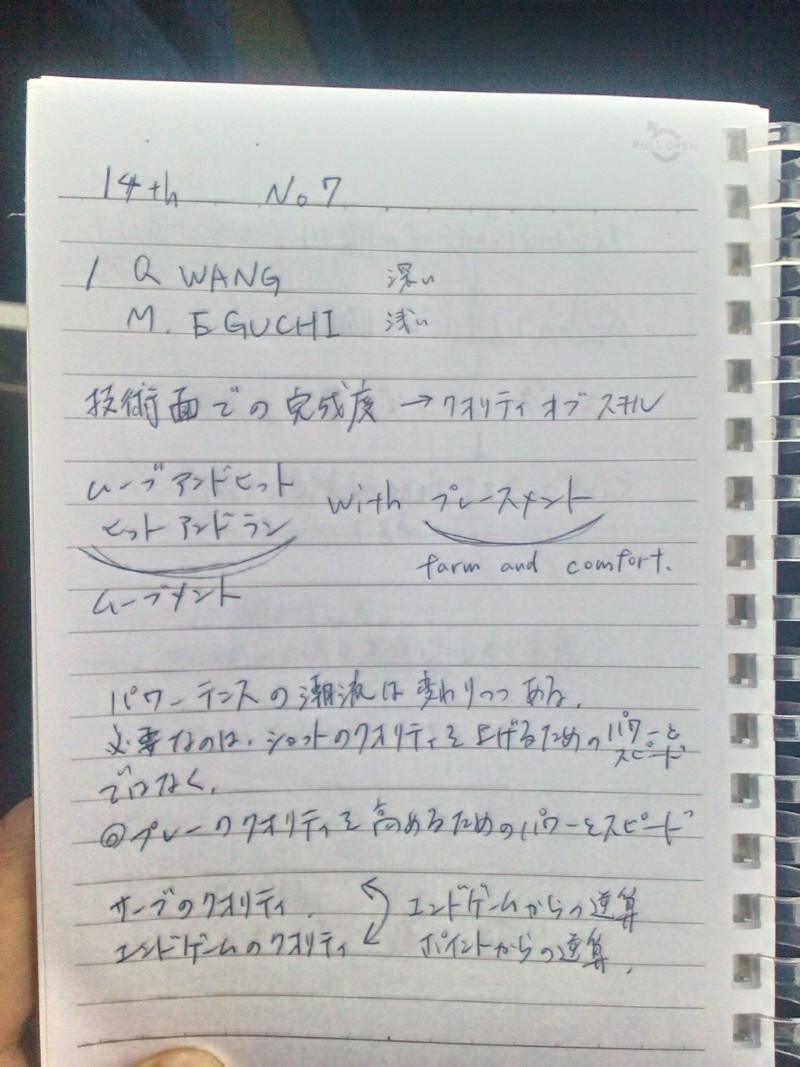 PULL OPEN
14th No 7
1 Q WANG 深い
M. EGUCHI 浅い
技術面での完成度 → クオリティオブスキル
ムーブアンドヒット
ヒットアンドラン with プレースメント
ムーブメント farm and comfort.
パワーテニスの潮流は変わりつつある。
必要なのは、ショットのクオリティを上げるためのパワーとスピード
ではなく、
◎プレークオリティを高めるためのパワーとスピード
サーブのクオリティ. エンドゲームからの逆算
エンドゲームのクオリティ ポイントからの逆算.